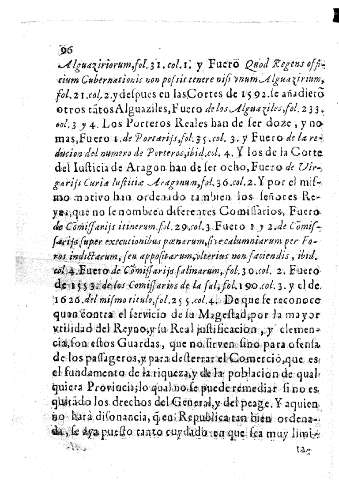 96
Alguaziriorum, fol. 31. col. 1. y Fuero Quod Regens offi-
cium Gubernationis non possit tenere nisi vnum Alguazirium,
fol. 21. col. 2. y despues en las Cortes de 1592. se añadierõ
otros tãtos Alguaziles, Fuero de los Alguaziles, fol. 233.
col. 3 y 4. Los Porteros Reales han de ser doze, y no
mas, Fuero 1. de Portarijs, fol. 35. col. 3. y Fuero de la re-
ducion del numero de Porteros, ibid. col. 4. Y los de la Corte
del Iusticia de Aragon han de ser ocho, Fuero de Vir-
garijs Curiæ Iusticiæ Aragonum, fol. 36. col. 2. Y por el mis-
mo motivo han ordenado tambien los señores Re-
yes, que no se nombren diferentes Comissarios, Fuero
de Comissarijs itinerum, fol. 29. col. 3. Fuero 1. y 2. de Comis-
sarijs super executionibus pœnarum, sive calumniarum per Fo-
ros indictarum, seu appositarum, vlterius non faciendis, ibid.
col. 4. Fuero de Comissarijs salinarum, fol. 30. col. 2. Fuero
de 1553. de los Comissarios de la sal, fol. 190. col. 3. y el de
1626. del mismo titulo, fol. 255. col. 4. De que se reconoce
quan contra el servicio de su Magestad, por la mayor
vtilidad del Reyno, y su Real justificacion, y clemen-
cia, son estos Guardas, que no sirven sino para ofensa
de los passageros, y para desterrar el Comercio, que es
el fundamento de la riqueza, y de la poblacion de qual
quiera Provincia; lo qual no se puede remediar si no es
quitãdo los drechos del General, y del peage. Y a quien
no hará disonancia, q̃ en Republica tan bien ordena-
da, se aya puesto tanto cuydado en que sea muy limi-
ta-